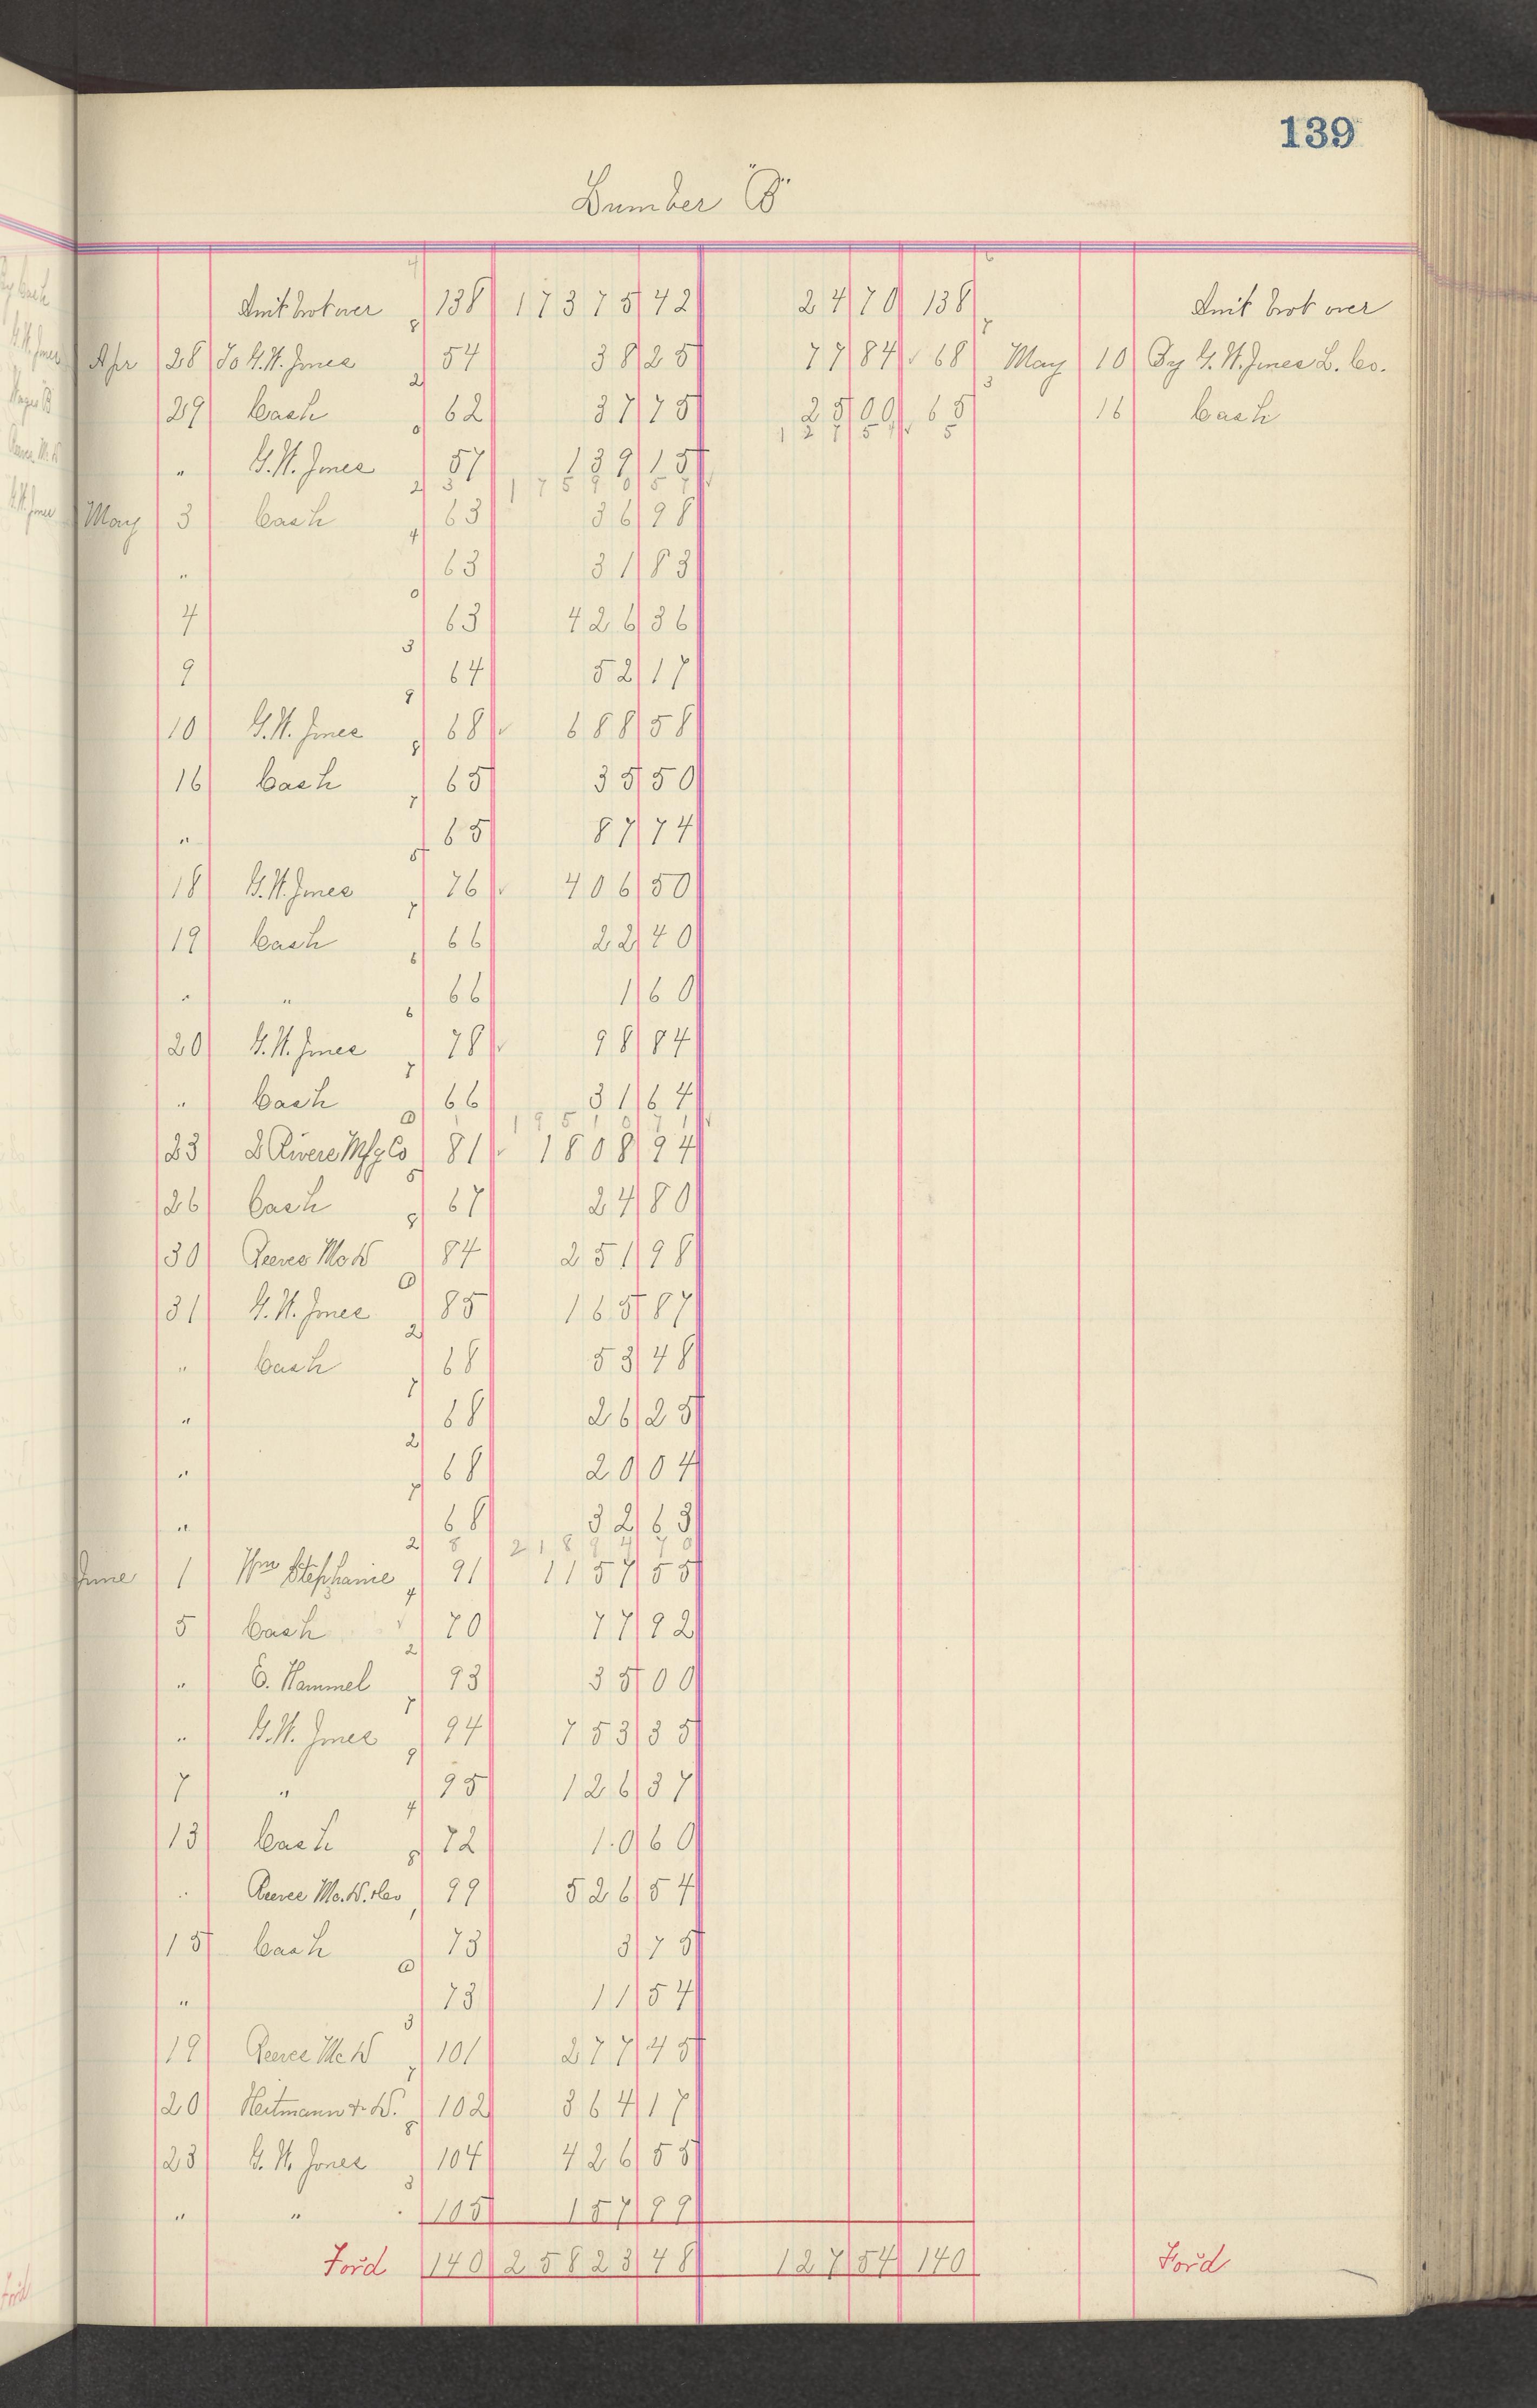 139
Lumber "B"
Amt brot over 138 17375 42 24 70 138 Amt brot over
Apr 28 To G.W. Jones 54 38 25 77 84 68 May 10 By G.W. Jones L. Co.
29 Cash 62 37 75 25 00 65 16 Cash
127 54
" G.W. Jones 57 139 15
17590 57
May 3 Cash 63 36 98
" 63 31 83
4 63 426 36
9 64 52 17
10 G.W. Jones 68 688 58
16 Cash 65 35 50
" 65 87 74
18 G.W. Jones 76 406 50
19 Cash 66 22 40
" " 66 1 60
20 G.W. Jones 78 98 84
" Cash 66 31 64
19510 71
23 2 Rivers Mfg Co 81 1808 94
26 Cash 67 24 80
30 Reeves McW 84 251 98
31 G.W. Jones 85 165 87
" Cash 68 53 48
" 68 26 25
" 68 20 04
" 68 32 63
21894 70
June 1 Wm Stephanie 91 1157 55
5 Cash 70 77 92
" E. Hammel 93 35 00
" G.W. Jones 94 753 35
7 " 95 126 37
13 Cash 72 10 60
" Reeves Mc.W. 99 526 54
15 Cash 73 3 75
" 73 11 54
19 Reeves McW 101 277 45
20 Heitmann & W. 102 364 17
23 G.W. Jones 104 426 55
" " 105 157 99
Ford 140 25823 48 127 54 140 Ford